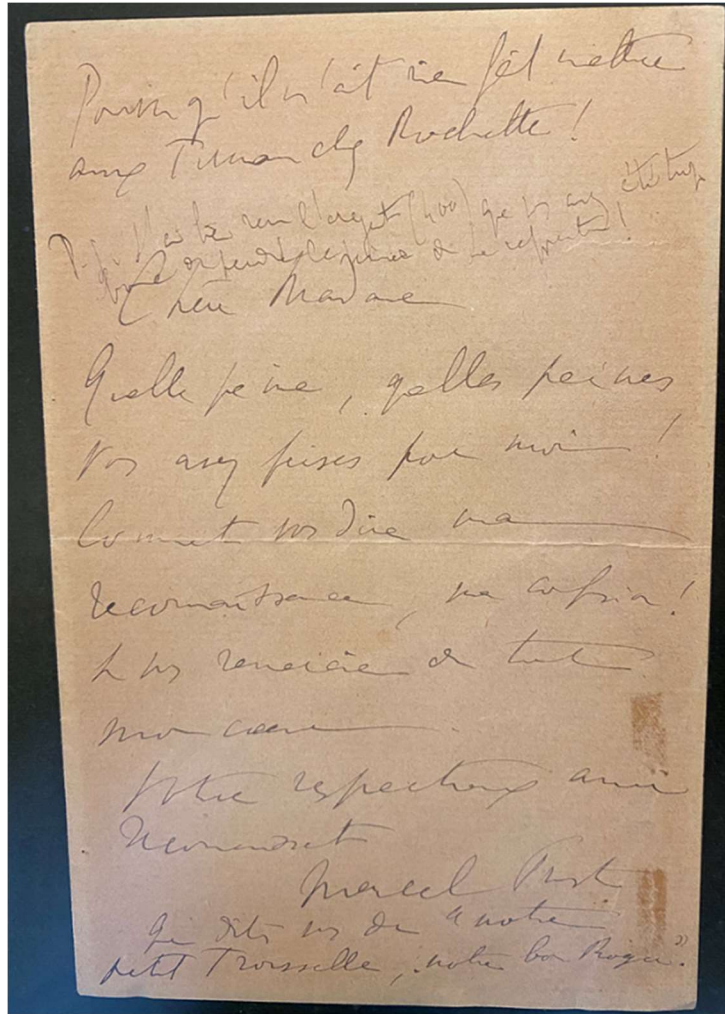 Pourvu qu'il n'ait rien fait mettre
aux Timan chez Rochette!
P.S. j'ai bien reçu l'argent (400) que vs avez été trop
bonne de prendre la peine de
Chère Madame
Quelle peine, quelles peines
vos avez prises pour moi!
Comment vs dire ma
reconnaissance, ma confusion!
Je vs remercie de tout
mon cœur.
Votre respectueux ami
reconnaissant
Marcel Proust
Que dites vs de notre
petit Trousselle, notre bon Roger?